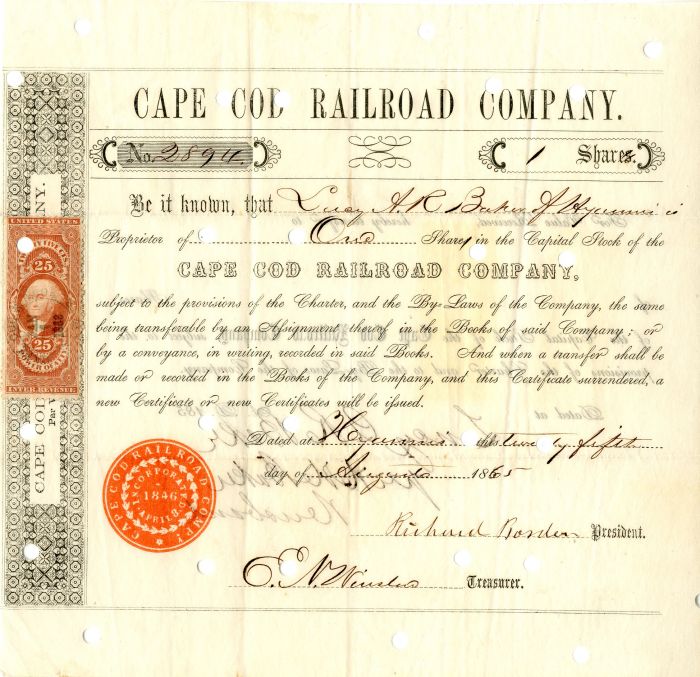 CAPE COD RAILROAD COMPANY.
No. 2894. 1 Shares.
Be it known, that Lucy A. R. Baker of Hyannis is
Proprietor of One Share, in the Capital Stock of the
CAPE COD RAILROAD COMPANY,
subject to the provisions of the Charter, and the By-Laws of the Company, the same
being transferable by an Assignment thereof in the Books of said Company; or
by a conveyance, in writing, recorded in said Books. And when a transfer shall be
made or recorded in the Books of the Company, and this Certificate surrendered, a
new Certificate or new Certificates will be issued.
Dated at Hyannis this twenty fifth
day of August 1865
Richard Borden President.
C. N. Winslow Treasurer.
CAPE COD RAILROAD COMPY
INCORPORATED
1846
UNITED STATES
25
25
INTER. REVENUE
CAPE COD
NY.
Par V